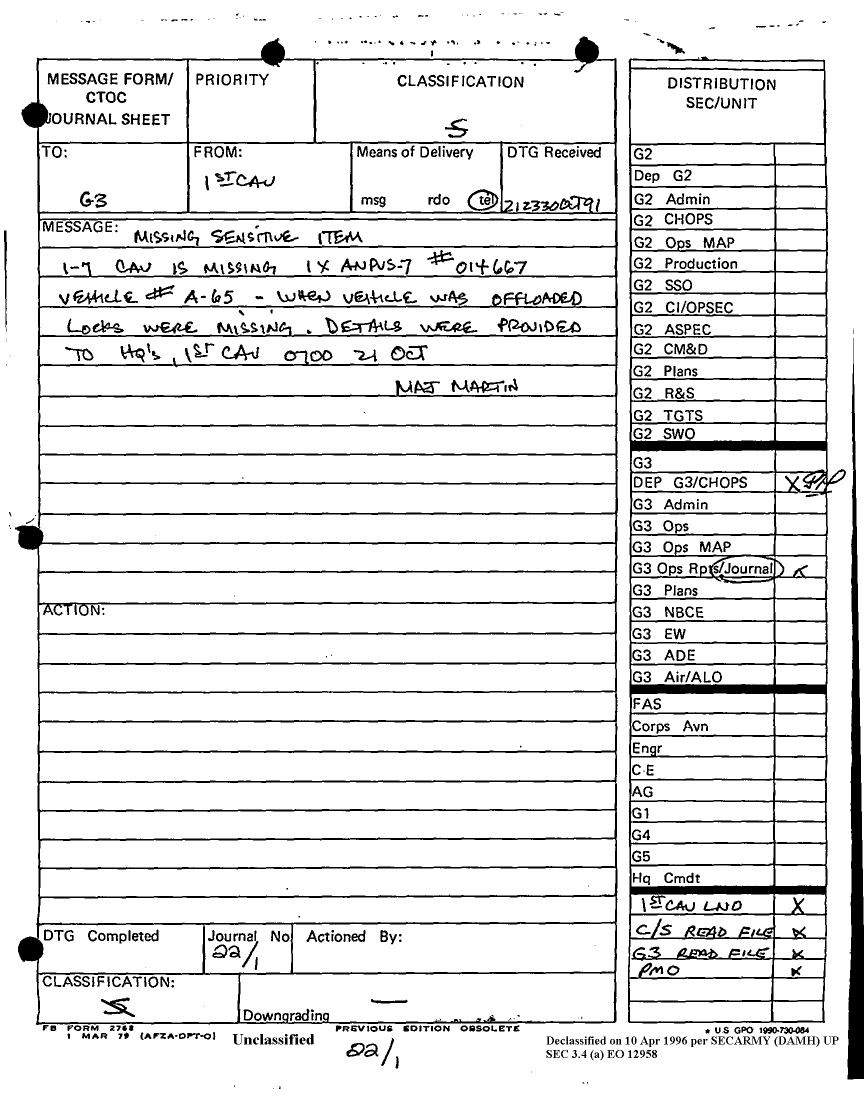 MESSAGE FORM/
CTOC
JOURNAL SHEET
PRIORITY
CLASSIFICATION
S
TO:
G3
FROM:
1ST CAV
Means of Delivery
msg rdo tel
DTG Received
MESSAGE: MISSING SENSITIVE ITEM
1-7 CAV IS MISSING 1X ANPVS-7 # 014667
VEHICLE # A-65 - WHEN VEHICLE WAS OFFLOADED
LOCKS WERE MISSING. DETAILS WERE PROVIDED
TO HQ's, 1ST CAV 0700 21 OCT
MAJ MARTIN
ACTION:
DTG Completed
Journal No
22/1
Actioned By:
CLASSIFICATION:
S
Downgrading —
DISTRIBUTION
SEC/UNIT
G2
Dep G2
G2 Admin
G2 CHOPS
G2 Ops MAP
G2 Production
G2 SSO
G2 CI/OPSEC
G2 ASPEC
G2 CM&D
G2 Plans
G2 R&S
G2 TGTS
G2 SWO
G3
DEP G3/CHOPS X
G3 Admin
G3 Ops
G3 Ops MAP
G3 Ops Rpts/Journal x
G3 Plans
G3 NBCE
G3 EW
G3 ADE
G3 Air/ALO
FAS
Corps Avn
Engr
C-E
AG
G1
G4
G5
Hq Cmdt
1ST CAV LNO X
C/S READ FILE X
G3 READ FILE X
PMO X
FB FORM 2768
1 MAR 79 (AFZA-DPT-O)
Unclassified
PREVIOUS EDITION OBSOLETE
22/1
* U.S GPO 1990-730-084
Declassified on 10 Apr 1996 per SECARMY (DAMH) UP
SEC 3.4 (a) EO 12958